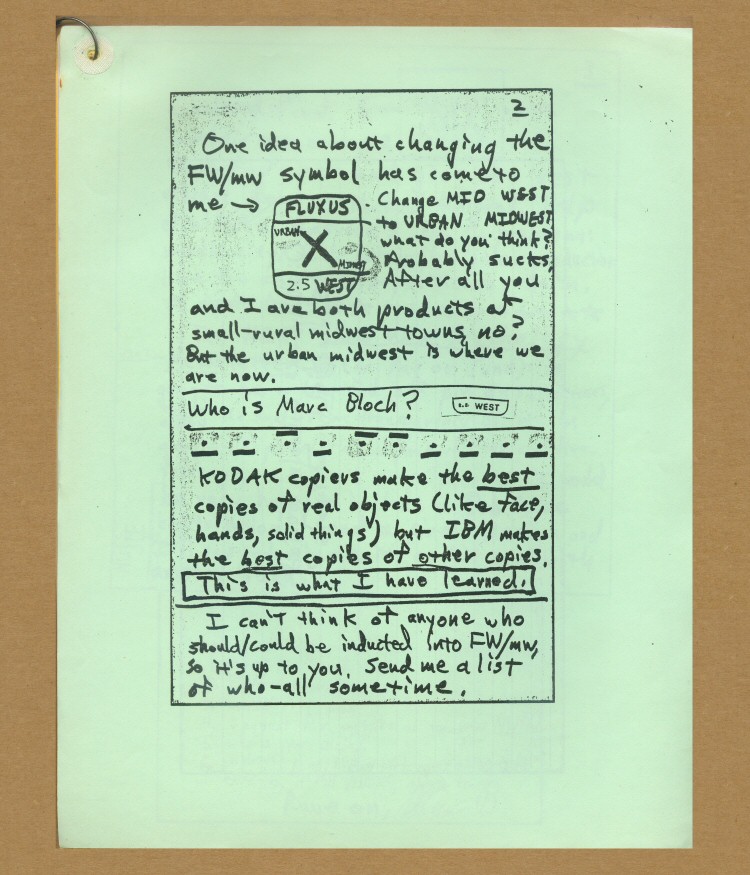 2
One idea about changing the
FW/mw symbol has come to
me → FLUXUS . Change MID WEST
to URBAN MIDWEST
URBAN X MIDWEST
what do you think?
Probably sucks,
2.5 WEST After all you
and I are both products of
small-rural midwest towns, no?
But the urban midwest is where we
are now.
Who is Marc Bloch? 2.5 WEST
KODAK copiers make the best
copies of real objects (like face,
hands, solid things) but IBM makes
the best copies of other copies.
This is what I have learned.
I can't think of anyone who
should/could be inducted into FW/mw,
so it's up to you. Send me a list
of who-all sometime.